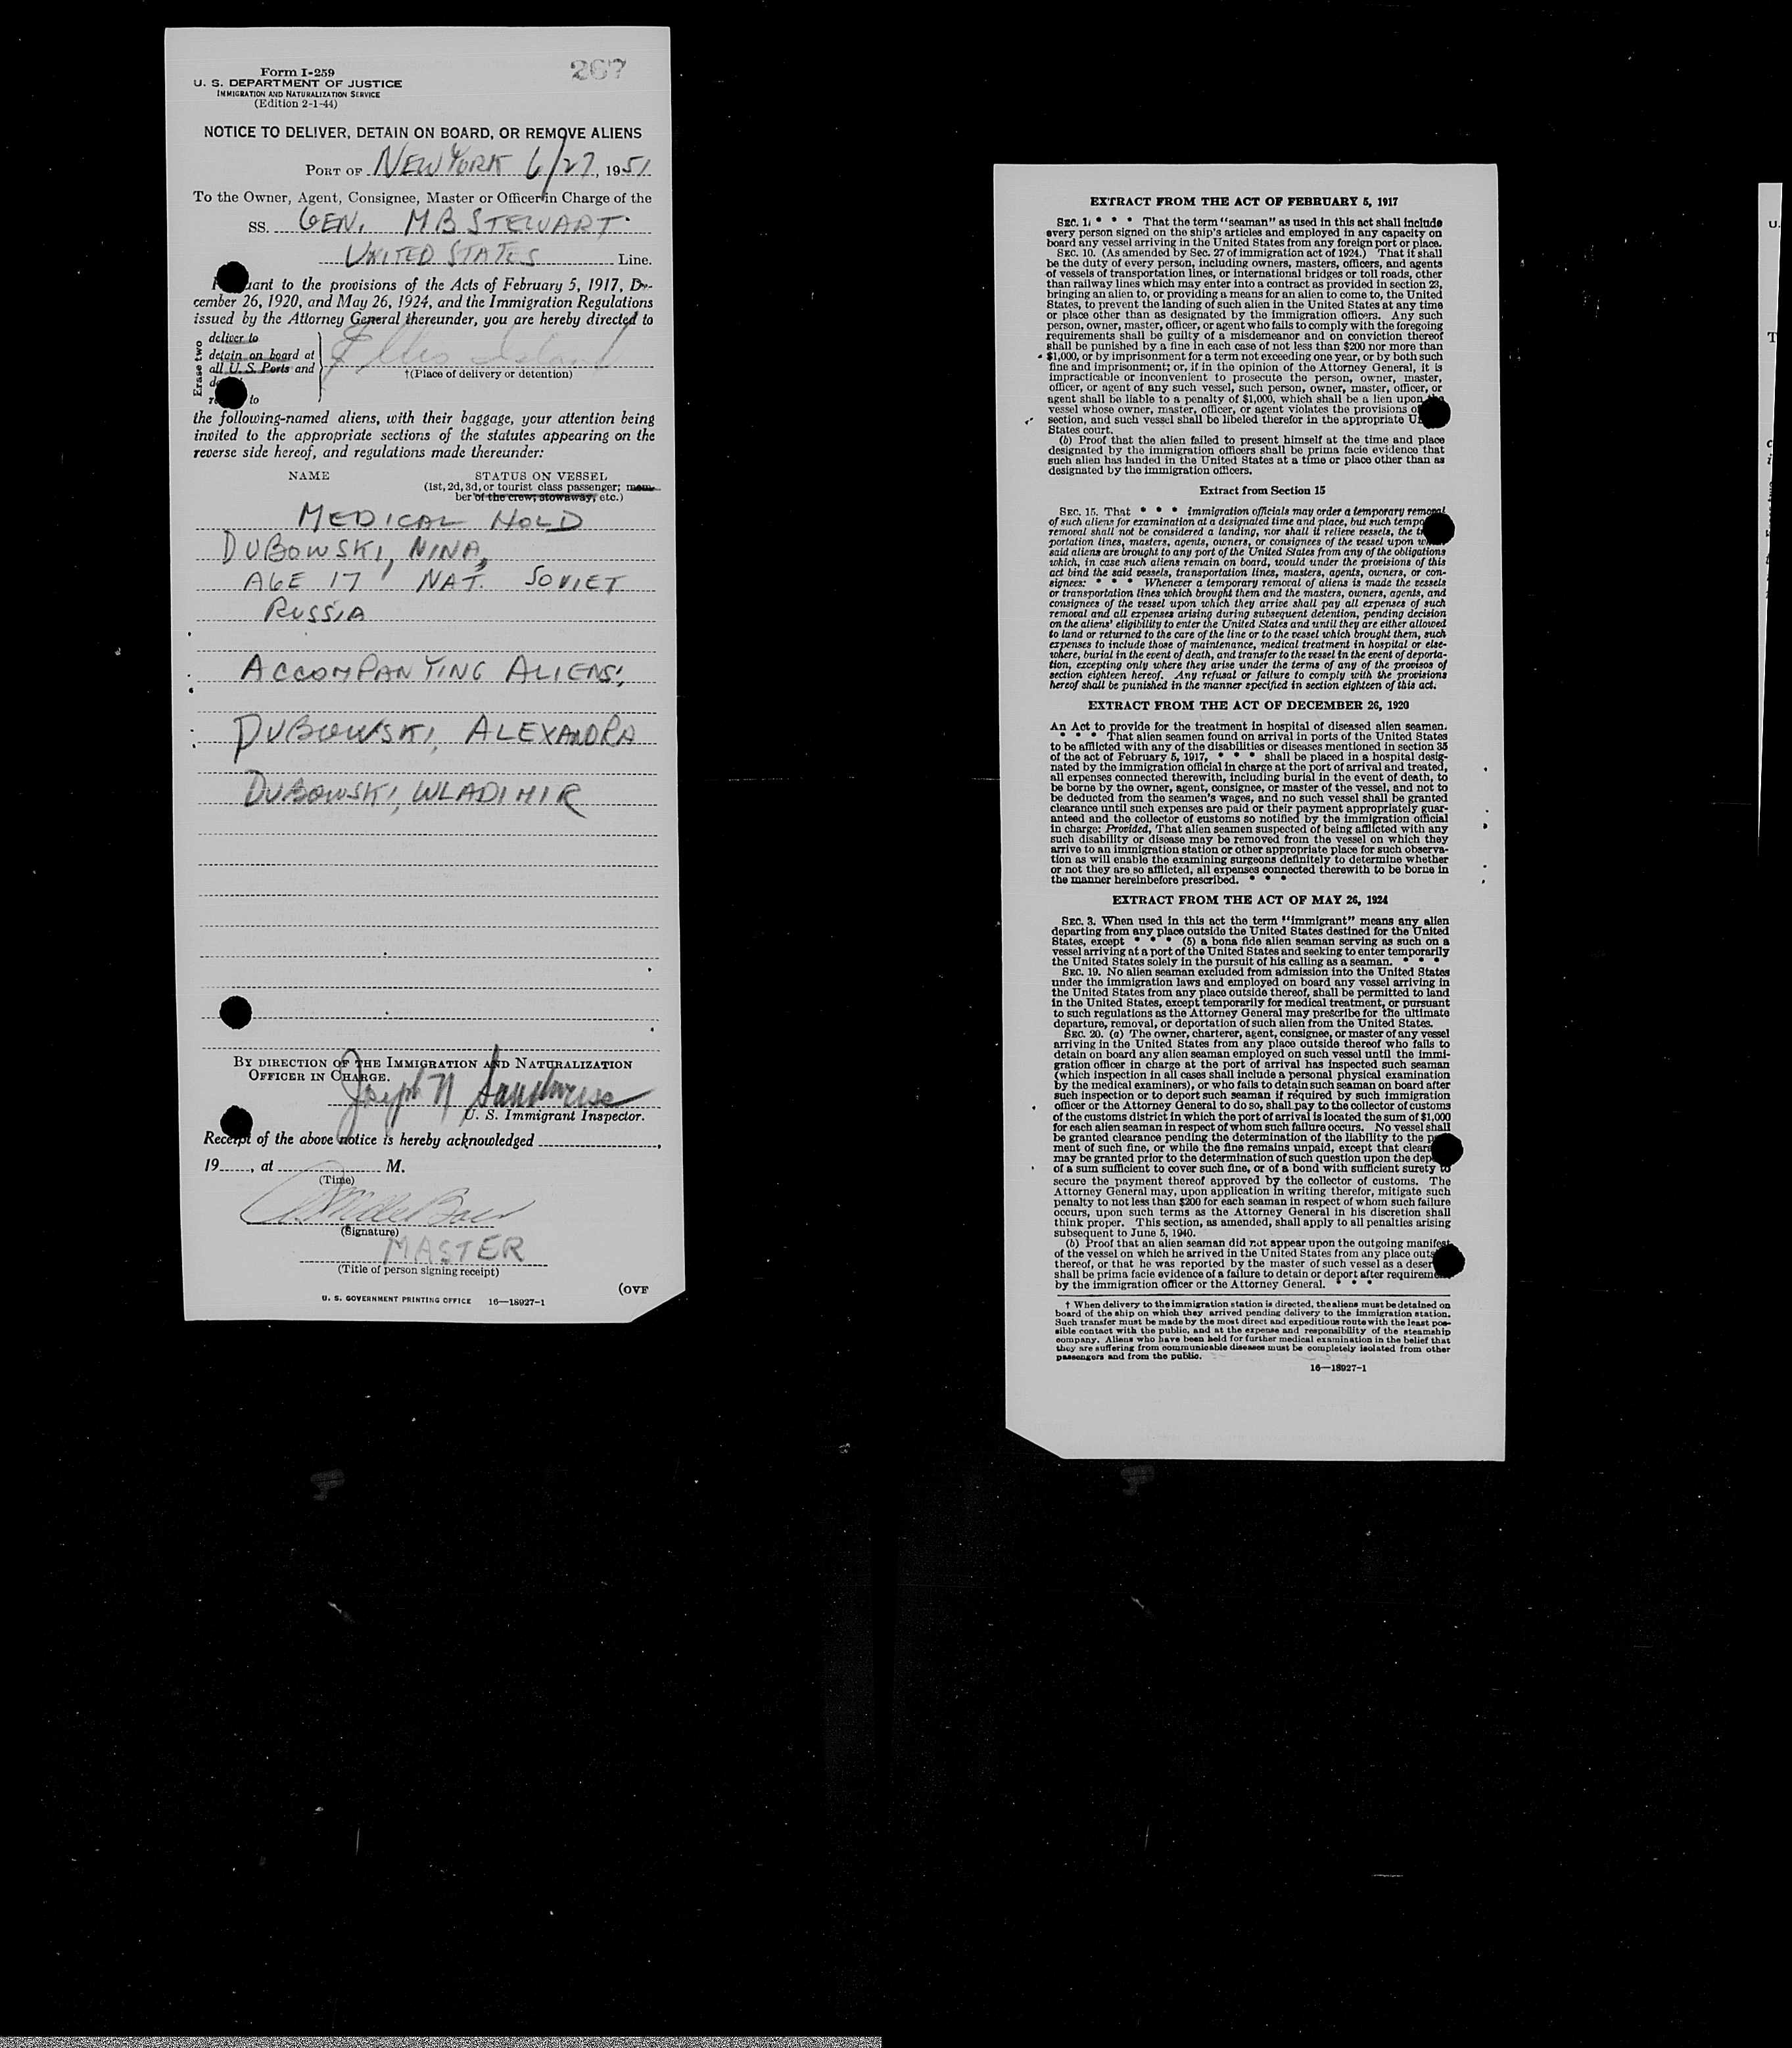 267
Form I-259
U. S. DEPARTMENT OF JUSTICE
IMMIGRATION AND NATURALIZATION SERVICE
(Edition 2-1-44)
NOTICE TO DELIVER, DETAIN ON BOARD, OR REMOVE ALIENS
PORT OF NEW YORK 6/27, 1951
To the Owner, Agent, Consignee, Master or Officer in Charge of the
SS. GEN. M B STEWART
UNITED STATES Line.
uant to the provisions of the Acts of February 5, 1917, De-
cember 26, 1920, and May 26, 1924, and the Immigration Regulations
issued by the Attorney General thereunder, you are hereby directed to
Erase two
deliver to
detain on board at
all U. S. Ports and
to
Ellis Island
†(Place of delivery or detention)
the following-named aliens, with their baggage, your attention being
invited to the appropriate sections of the statutes appearing on the
reverse side hereof, and regulations made thereunder:
NAME STATUS ON VESSEL
(1st, 2d, 3d, or tourist class passenger; mem-
ber of the crew; stowaway, etc.)
MEDICAL HOLD
DUBOWSKI, NINA,
AGE 17 NAT. SOVIET
RUSSIA
ACCOMPANYING ALIENS:
DUBOWSKI, ALEXANDRA
DUBOWSKI, WLADIMIR
BY DIRECTION OF THE IMMIGRATION AND NATURALIZATION
OFFICER IN CHARGE.
Joseph N
U. S. Immigrant Inspector.
Receipt of the above notice is hereby acknowledged ,
19 , at M.
(Time)
(Signature)
MASTER
(Title of person signing receipt)
(OVE
U. S. GOVERNMENT PRINTING OFFICE 16—18927-1
EXTRACT FROM THE ACT OF FEBRUARY 5, 1917
SEC. 1. * * * That the term "seaman" as used in this act shall include
every person signed on the ship's articles and employed in any capacity on
board any vessel arriving in the United States from any foreign port or place.
SEC. 10. (As amended by Sec. 27 of immigration act of 1924.) That it shall
be the duty of every person, including owners, masters, officers, and agents
of vessels of transportation lines, or international bridges or toll roads, other
than railway lines which may enter into a contract as provided in section 23,
bringing an alien to, or providing a means for an alien to come to, the United
States, to prevent the landing of such alien in the United States at any time
or place other than as designated by the immigration officers. Any such
person, owner, master, officer, or agent who fails to comply with the foregoing
requirements shall be guilty of a misdemeanor and on conviction thereof
shall be punished by a fine in each case of not less than $200 nor more than
$1,000, or by imprisonment for a term not exceeding one year, or by both such
fine and imprisonment; or, if in the opinion of the Attorney General, it is
impracticable or inconvenient to prosecute the person, owner, master,
officer, or agent of any such vessel, such person, owner, master, officer, or
agent shall be liable to a penalty of $1,000, which shall be a lien upon the
vessel whose owner, master, officer, or agent violates the provisions of
section, and such vessel shall be libeled therefor in the appropriate U
States court.
(b) Proof that the alien failed to present himself at the time and place
designated by the immigration officers shall be prima facie evidence that
such alien has landed in the United States at a time or place other than as
designated by the immigration officers.
Extract from Section 15
SEC. 15. That * * * immigration officials may order a temporary removal
of such aliens for examination at a designated time and place, but such tempo
removal shall not be considered a landing, nor shall it relieve vessels, the t
portation lines, masters, agents, owners, or consignees of the vessel upon
said aliens are brought to any port of the United States from any of the obligations
which, in case such aliens remain on board, would under the provisions of this
act bind the said vessels, transportation lines, masters, agents, owners, or con-
signees: * * * Whenever a temporary removal of aliens is made the vessels
or transportation lines which brought them and the masters, owners, agents, and
consignees of the vessel upon which they arrive shall pay all expenses of such
removal and all expenses arising during subsequent detention, pending decision
on the aliens' eligibility to enter the United States and until they are either allowed
to land or returned to the care of the line or to the vessel which brought them, such
expenses to include those of maintenance, medical treatment in hospital or else-
where, burial in the event of death, and transfer to the vessel in the event of deporta-
tion, excepting only where they arise under the terms of any of the provisos of
section eighteen hereof. Any refusal or failure to comply with the provisions
hereof shall be punished in the manner specified in section eighteen of this act.
EXTRACT FROM THE ACT OF DECEMBER 26, 1920
An Act to provide for the treatment in hospital of diseased alien seamen.
* * * That alien seamen found on arrival in ports of the United States
to be afflicted with any of the disabilities or diseases mentioned in section 35
of the act of February 5, 1917, * * * shall be placed in a hospital desig-
nated by the immigration official in charge at the port of arrival and treated,
all expenses connected therewith, including burial in the event of death, to
be borne by the owner, agent, consignee, or master of the vessel, and not to
be deducted from the seamen's wages, and no such vessel shall be granted
clearance until such expenses are paid or their payment appropriately guar-
anteed and the collector of customs so notified by the immigration official
in charge: Provided, That alien seamen suspected of being afflicted with any
such disability or disease may be removed from the vessel on which they
arrive to an immigration station or other appropriate place for such observa-
tion as will enable the examining surgeons definitely to determine whether
or not they are so afflicted, all expenses connected therewith to be borne in
the manner hereinbefore prescribed. * * *
EXTRACT FROM THE ACT OF MAY 26, 1924
SEC. 3. When used in this act the term "immigrant" means any alien
departing from any place outside the United States destined for the United
States, except * * * (5) a bona fide alien seaman serving as such on a
vessel arriving at a port of the United States and seeking to enter temporarily
the United States solely in the pursuit of his calling as a seaman. * * *
SEC. 19. No alien seaman excluded from admission into the United States
under the immigration laws and employed on board any vessel arriving in
the United States from any place outside thereof, shall be permitted to land
in the United States, except temporarily for medical treatment, or pursuant
to such regulations as the Attorney General may prescribe for the ultimate
departure, removal, or deportation of such alien from the United States.
SEC. 20. (a) The owner, charterer, agent, consignee, or master of any vessel
arriving in the United States from any place outside thereof who fails to
detain on board any alien seaman employed on such vessel until the immi-
gration officer in charge at the port of arrival has inspected such seaman
(which inspection in all cases shall include a personal physical examination
by the medical examiners), or who fails to detain such seaman on board after
such inspection or to deport such seaman if required by such immigration
officer or the Attorney General to do so, shall pay to the collector of customs
of the customs district in which the port of arrival is located the sum of $1,000
for each alien seaman in respect of whom such failure occurs. No vessel shall
be granted clearance pending the determination of the liability to the p
ment of such fine, or while the fine remains unpaid, except that clear
may be granted prior to the determination of such question upon the dep
of a sum sufficient to cover such fine, or of a bond with sufficient surety to
secure the payment thereof approved by the collector of customs. The
Attorney General may, upon application in writing therefor, mitigate such
penalty to not less than $200 for each seaman in respect of whom such failure
occurs, upon such terms as the Attorney General in his discretion shall
think proper. This section, as amended, shall apply to all penalties arising
subsequent to June 5, 1940.
(b) Proof that an alien seaman did not appear upon the outgoing manifest
of the vessel on which he arrived in the United States from any place outs
thereof, or that he was reported by the master of such vessel as a deser
shall be prima facie evidence of a failure to detain or deport after requirem
by the immigration officer or the Attorney General. * * *
† When delivery to the immigration station is directed, the aliens must be detained on
board of the ship on which they arrived pending delivery to the immigration station.
Such transfer must be made by the most direct and expeditious route with the least pos-
sible contact with the public, and at the expense and responsibility of the steamship
company. Aliens who have been held for further medical examination in the belief that
they are suffering from communicable diseases must be completely isolated from other
passengers and from the public.
16—18927-1